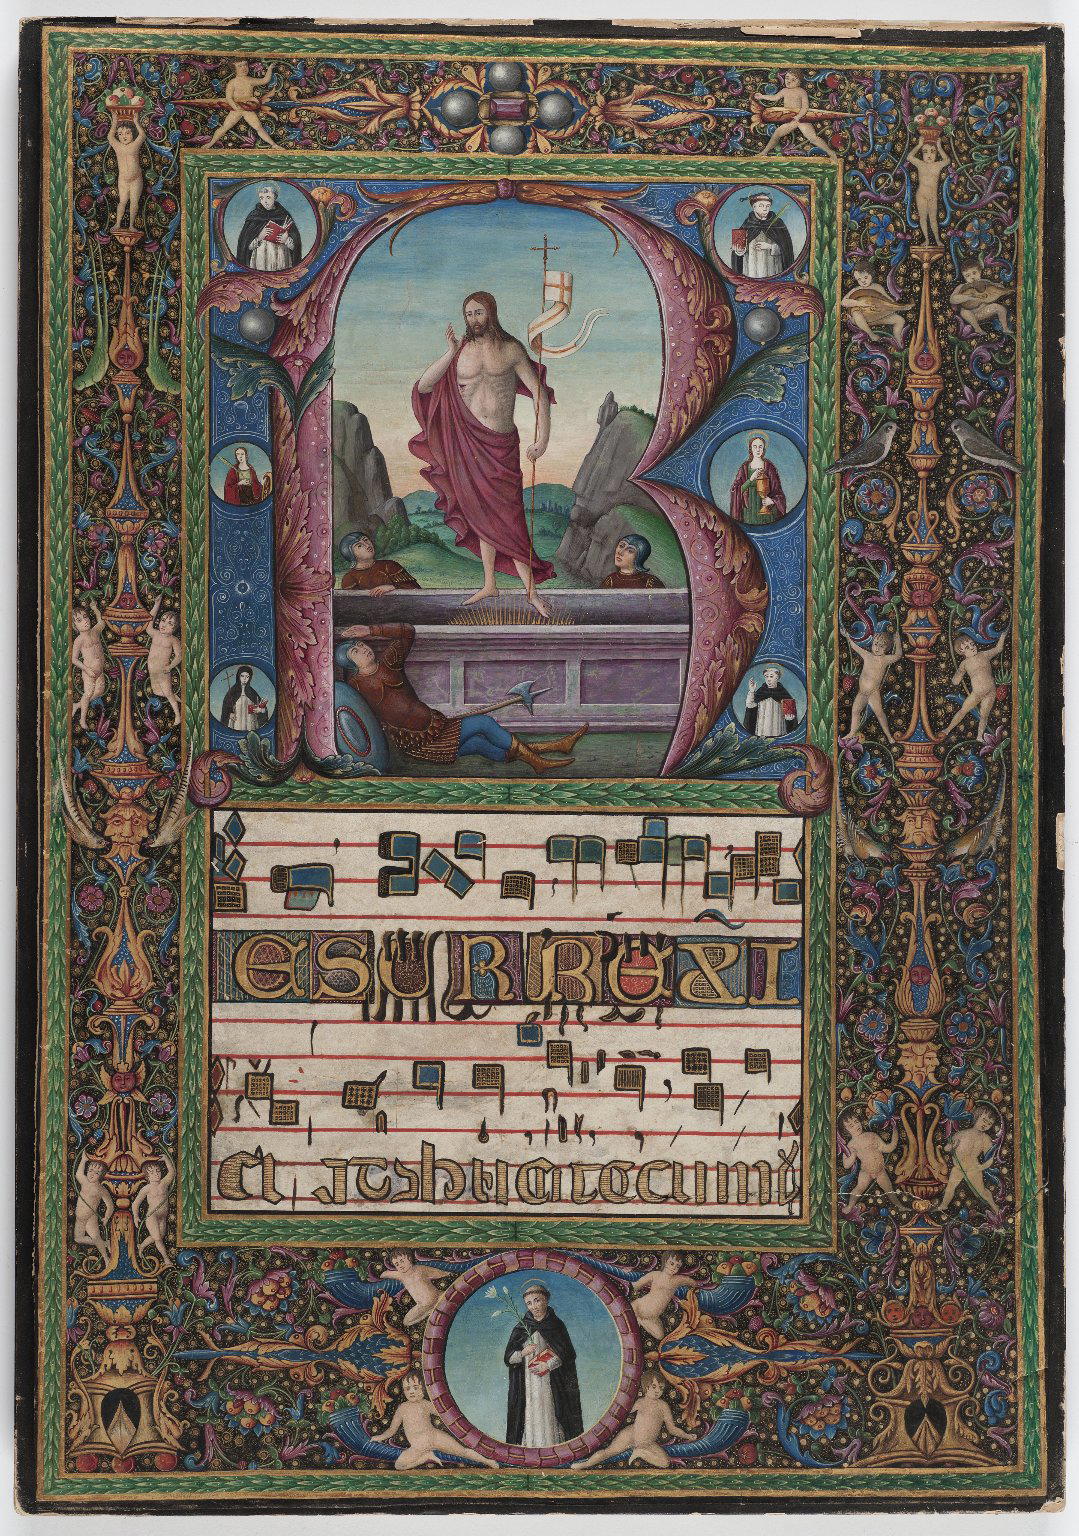 RESURREXI
et adhuc tecum